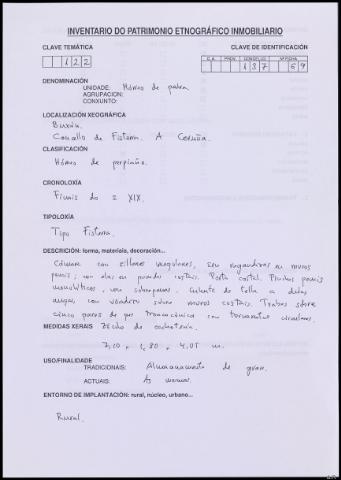 INVENTARIO DO PATRIMONIO ETNOGRÁFICO INMOBILIARIO
CLAVE TEMÁTICA CLAVE DE IDENTIFICACIÓN
C.A. PROV. CONCELLO Nº FICHA
1 2 2 1 3 7 6 9
DENOMINACIÓN
UNIDADE: Hórreo de pedra
AGRUPACION:
CONXUNTO:
LOCALIZACIÓN XEOGRÁFICA
Buxán
Concello de Fisterra. A Coruña.
CLASIFICACIÓN
Hórreo de perpiaño.
CRONOLOXÍA
Finais do s XIX.
TIPOLOXÍA
Tipo Fisterra.
DESCRICIÓN: forma, materiais, decoración...
Cámara con sillares regulares, sen en muros
costais. Porta costal.
monolíticos, con Cuberta de tella a dúas
augas, con sobre muros costais. Trabes sobre
cinco pares de pes troncocónicos con tornarratos circulares.
MEDIDAS XERAIS Teito de
7,10 x 1,80 x 4,05 m.
USO/FINALIDADE
TRADICIONAIS: Almacenamento de gran.
ACTUAIS: As mesmas.
ENTORNO DE IMPLANTACIÓN: rural, núcleo, urbano...
Rural.